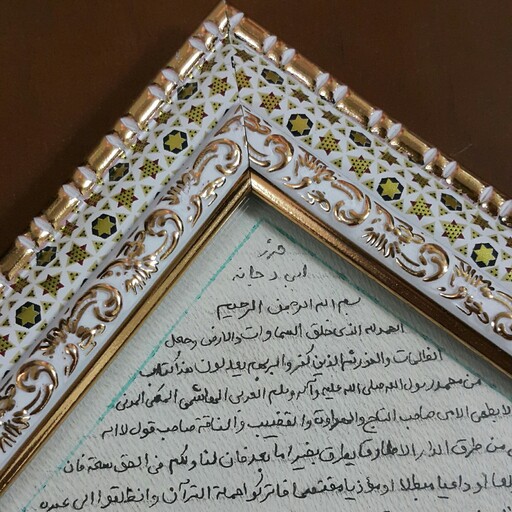 حرز
ابی دجانه
بسم الله الرحمن الرحیم
الحمد لله الذی خلق السماوات والارض وجعل
الظلمات والنور ثم الذین کفروا بربهم یعدلون هذا کتاب
من محمد رسول الله صلی الله علیه وآله وسلم العربی الهاشمی المکی المدنی
الابطحی الامی صاحب التاج والهراوة والقضیب والناقة صاحب قول لا اله
من طرق الدار الا طارقا یطرق بخیر اما بعد فان لنا ولکم فی الحق سعة فان
او داعیا مبطلا او مؤذیا مقتحما فاترکوا حملة القرآن وانطلقوا الی عبدة